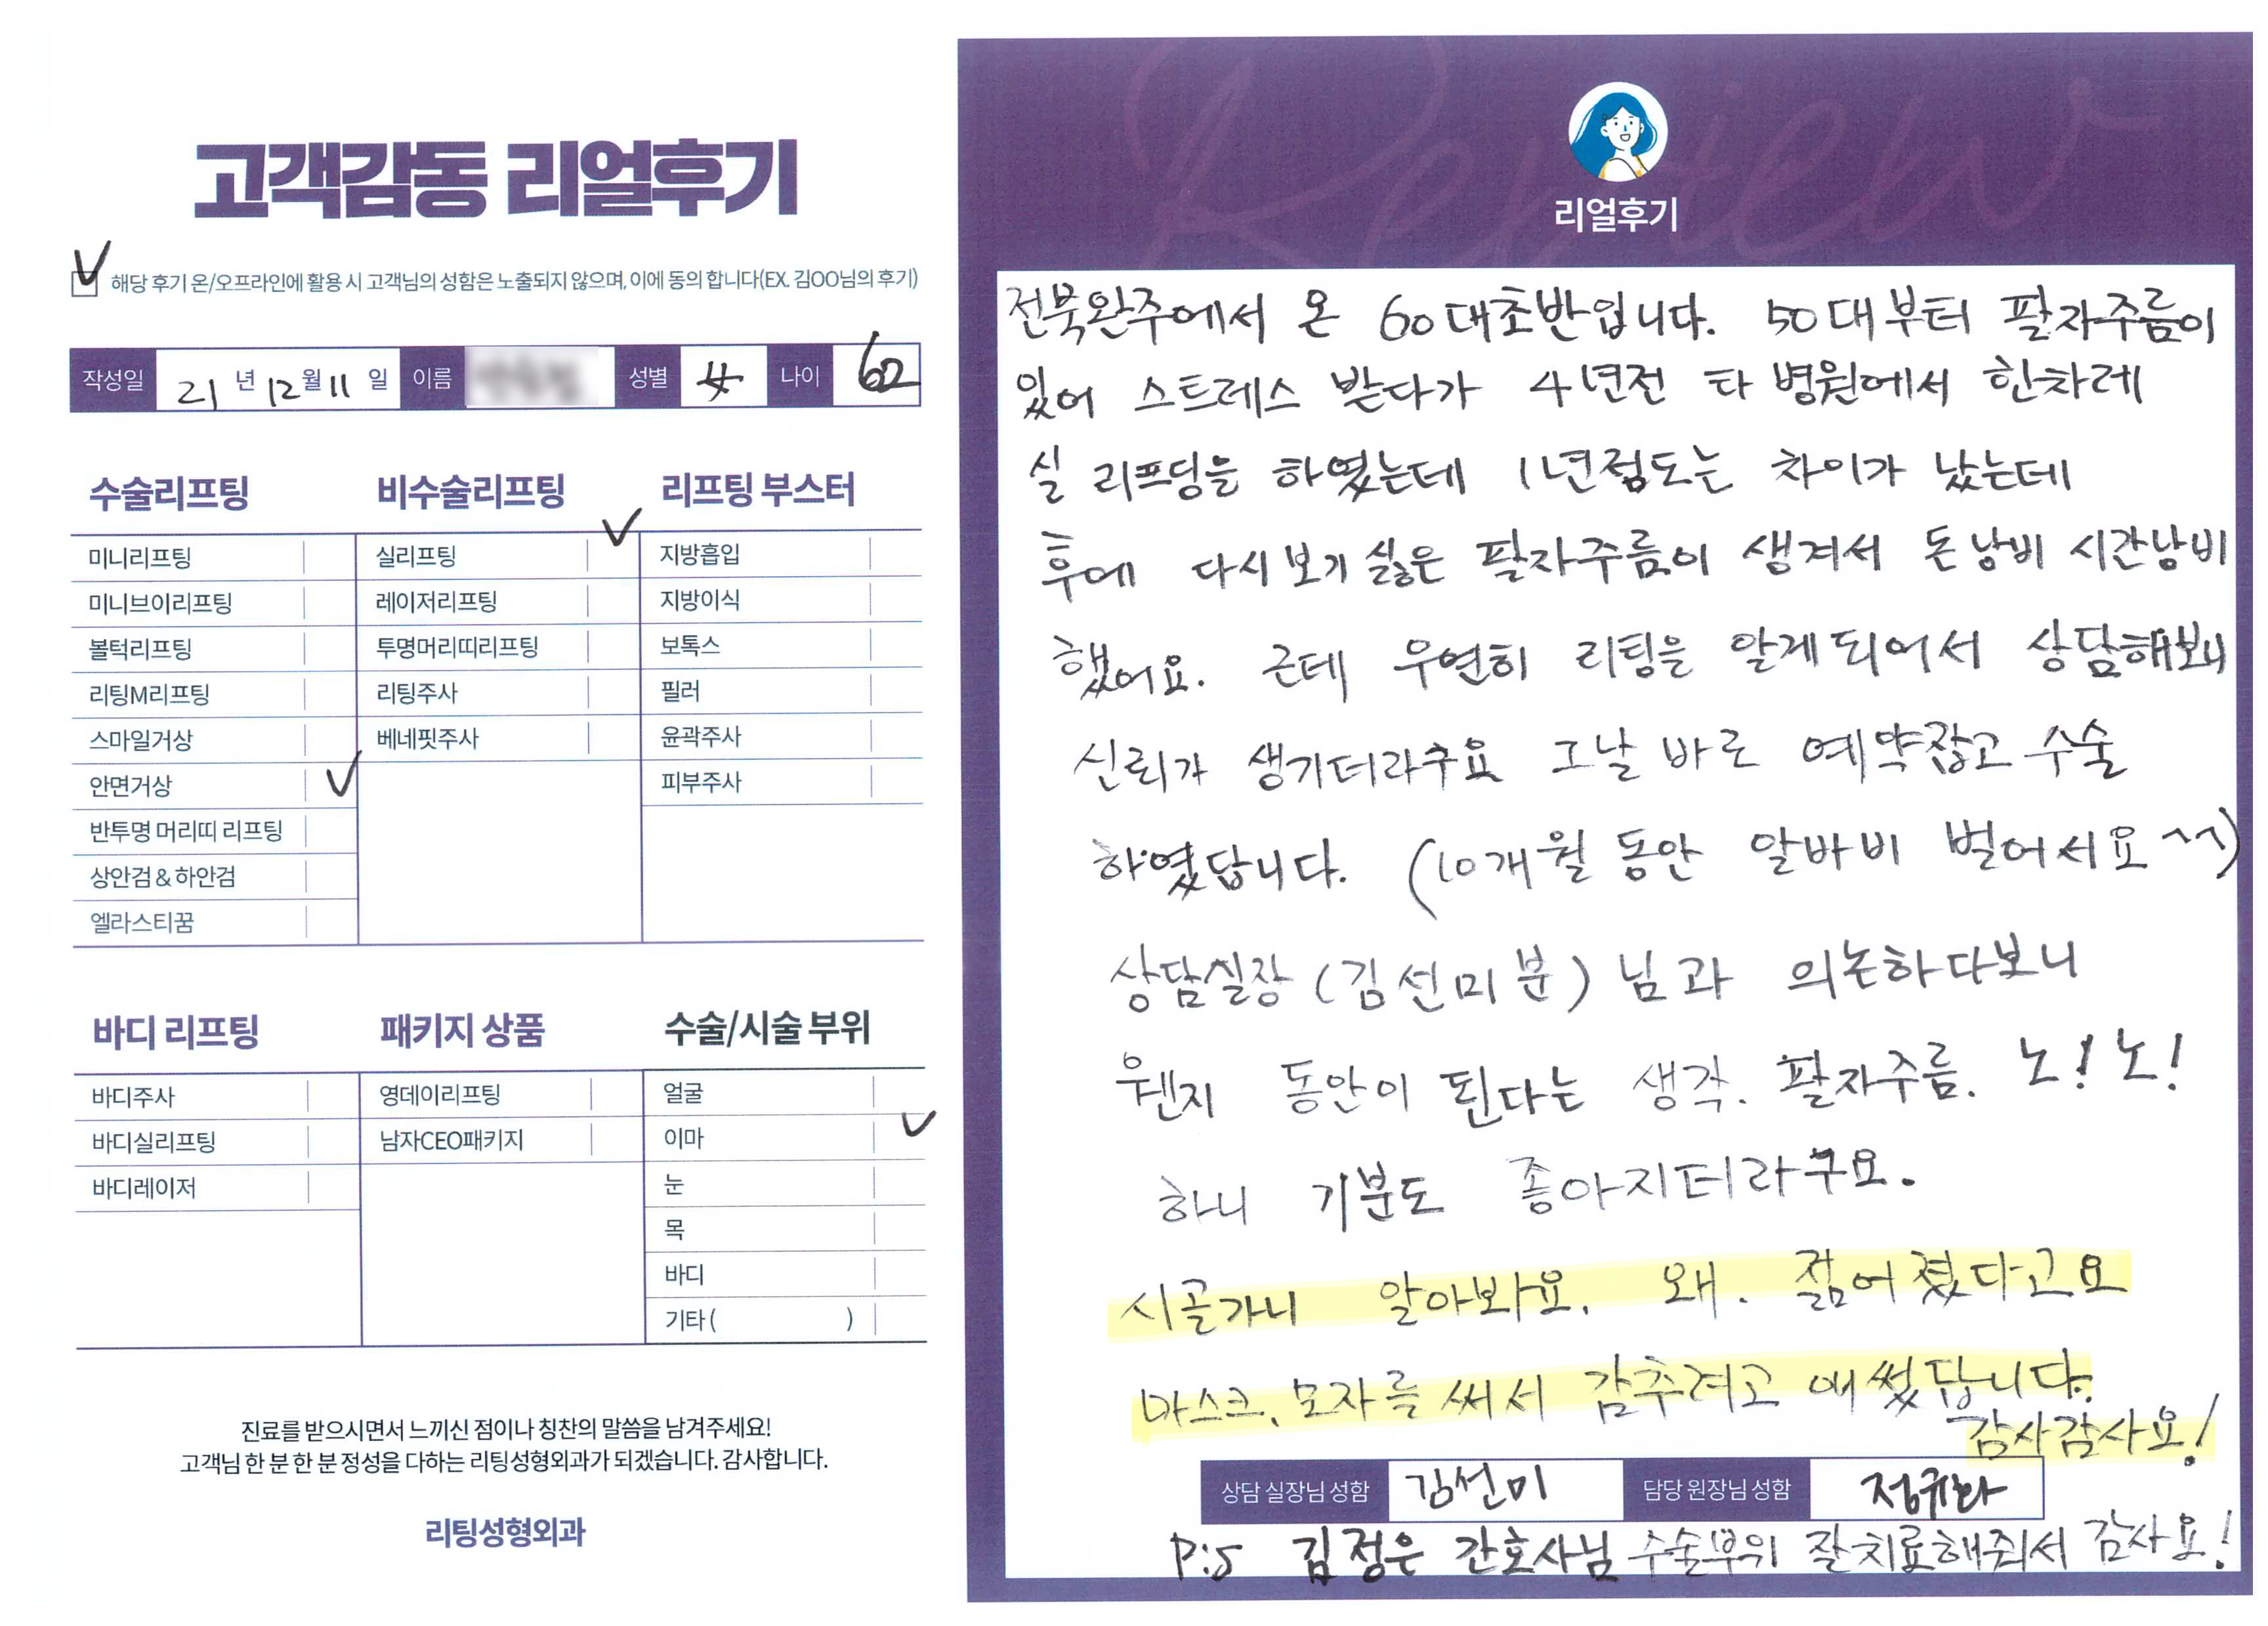 고객감동 리얼후기
해당 후기 온/오프라인에 활용 시 고객님의 성함은 노출되지 않으며, 이에 동의 합니다(EX. 김OO님의 후기)
작성일 21 년 12 월 11 일 이름 성별 女 나이 62
수술리프팅
미니리프팅
미니브이리프팅
볼턱리프팅
리팅M리프팅
스마일거상
안면거상
반투명 머리띠 리프팅
상안검 & 하안검
엘라스티꿈
비수술리프팅
실리프팅
레이저리프팅
투명머리띠리프팅
리팅주사
베네핏주사
리프팅 부스터
지방흡입
지방이식
보톡스
필러
윤곽주사
피부주사
바디 리프팅
바디주사
바디실리프팅
바디레이저
패키지 상품
영데이리프팅
남자CEO패키지
수술/시술 부위
얼굴
이마
눈
목
바디
기타( )
진료를 받으시면서 느끼신 점이나 칭찬의 말씀을 남겨주세요!
고객님 한 분 한 분 정성을 다하는 리팅성형외과가 되겠습니다. 감사합니다.
리팅성형외과
Review
리얼후기
전북완주에서 온 60대초반입니다. 50대부터 팔자주름이
있어 스트레스 받다가 4년전 타 병원에서 한차례
실 리프팅을 하였는데 1년정도는 차이가 났는데
후에 다시 보기 싫은 팔자주름이 생겨서 돈낭비 시간낭비
했어요. 근데 우연히 리팅을 알게되어서 상담해보니
신뢰가 생기더라구요 그날 바로 예약잡고 수술
하였답니다. (10개월 동안 알바비 벌어서요 ^^)
상담실장(김선미분)님과 의논하다보니
웬지 동안이 된다는 생각. 팔자주름. 노! 노!
하니 기분도 좋아지더라구요.
시골가니 알아봐요. 왜. 젊어졌다고요
마스크, 모자를 써서 감추려고 애썼답니다.
감사감사요!
상담 실장님 성함 김선미 담당 원장님 성함
P:S 김정은 간호사님 수술부위 잘치료해줘서 감사요!